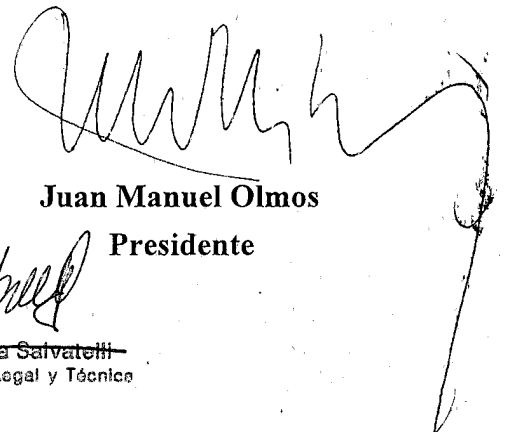 Juan Manuel Olmos
Presidente
a Salvatelli
Legal y Técnica